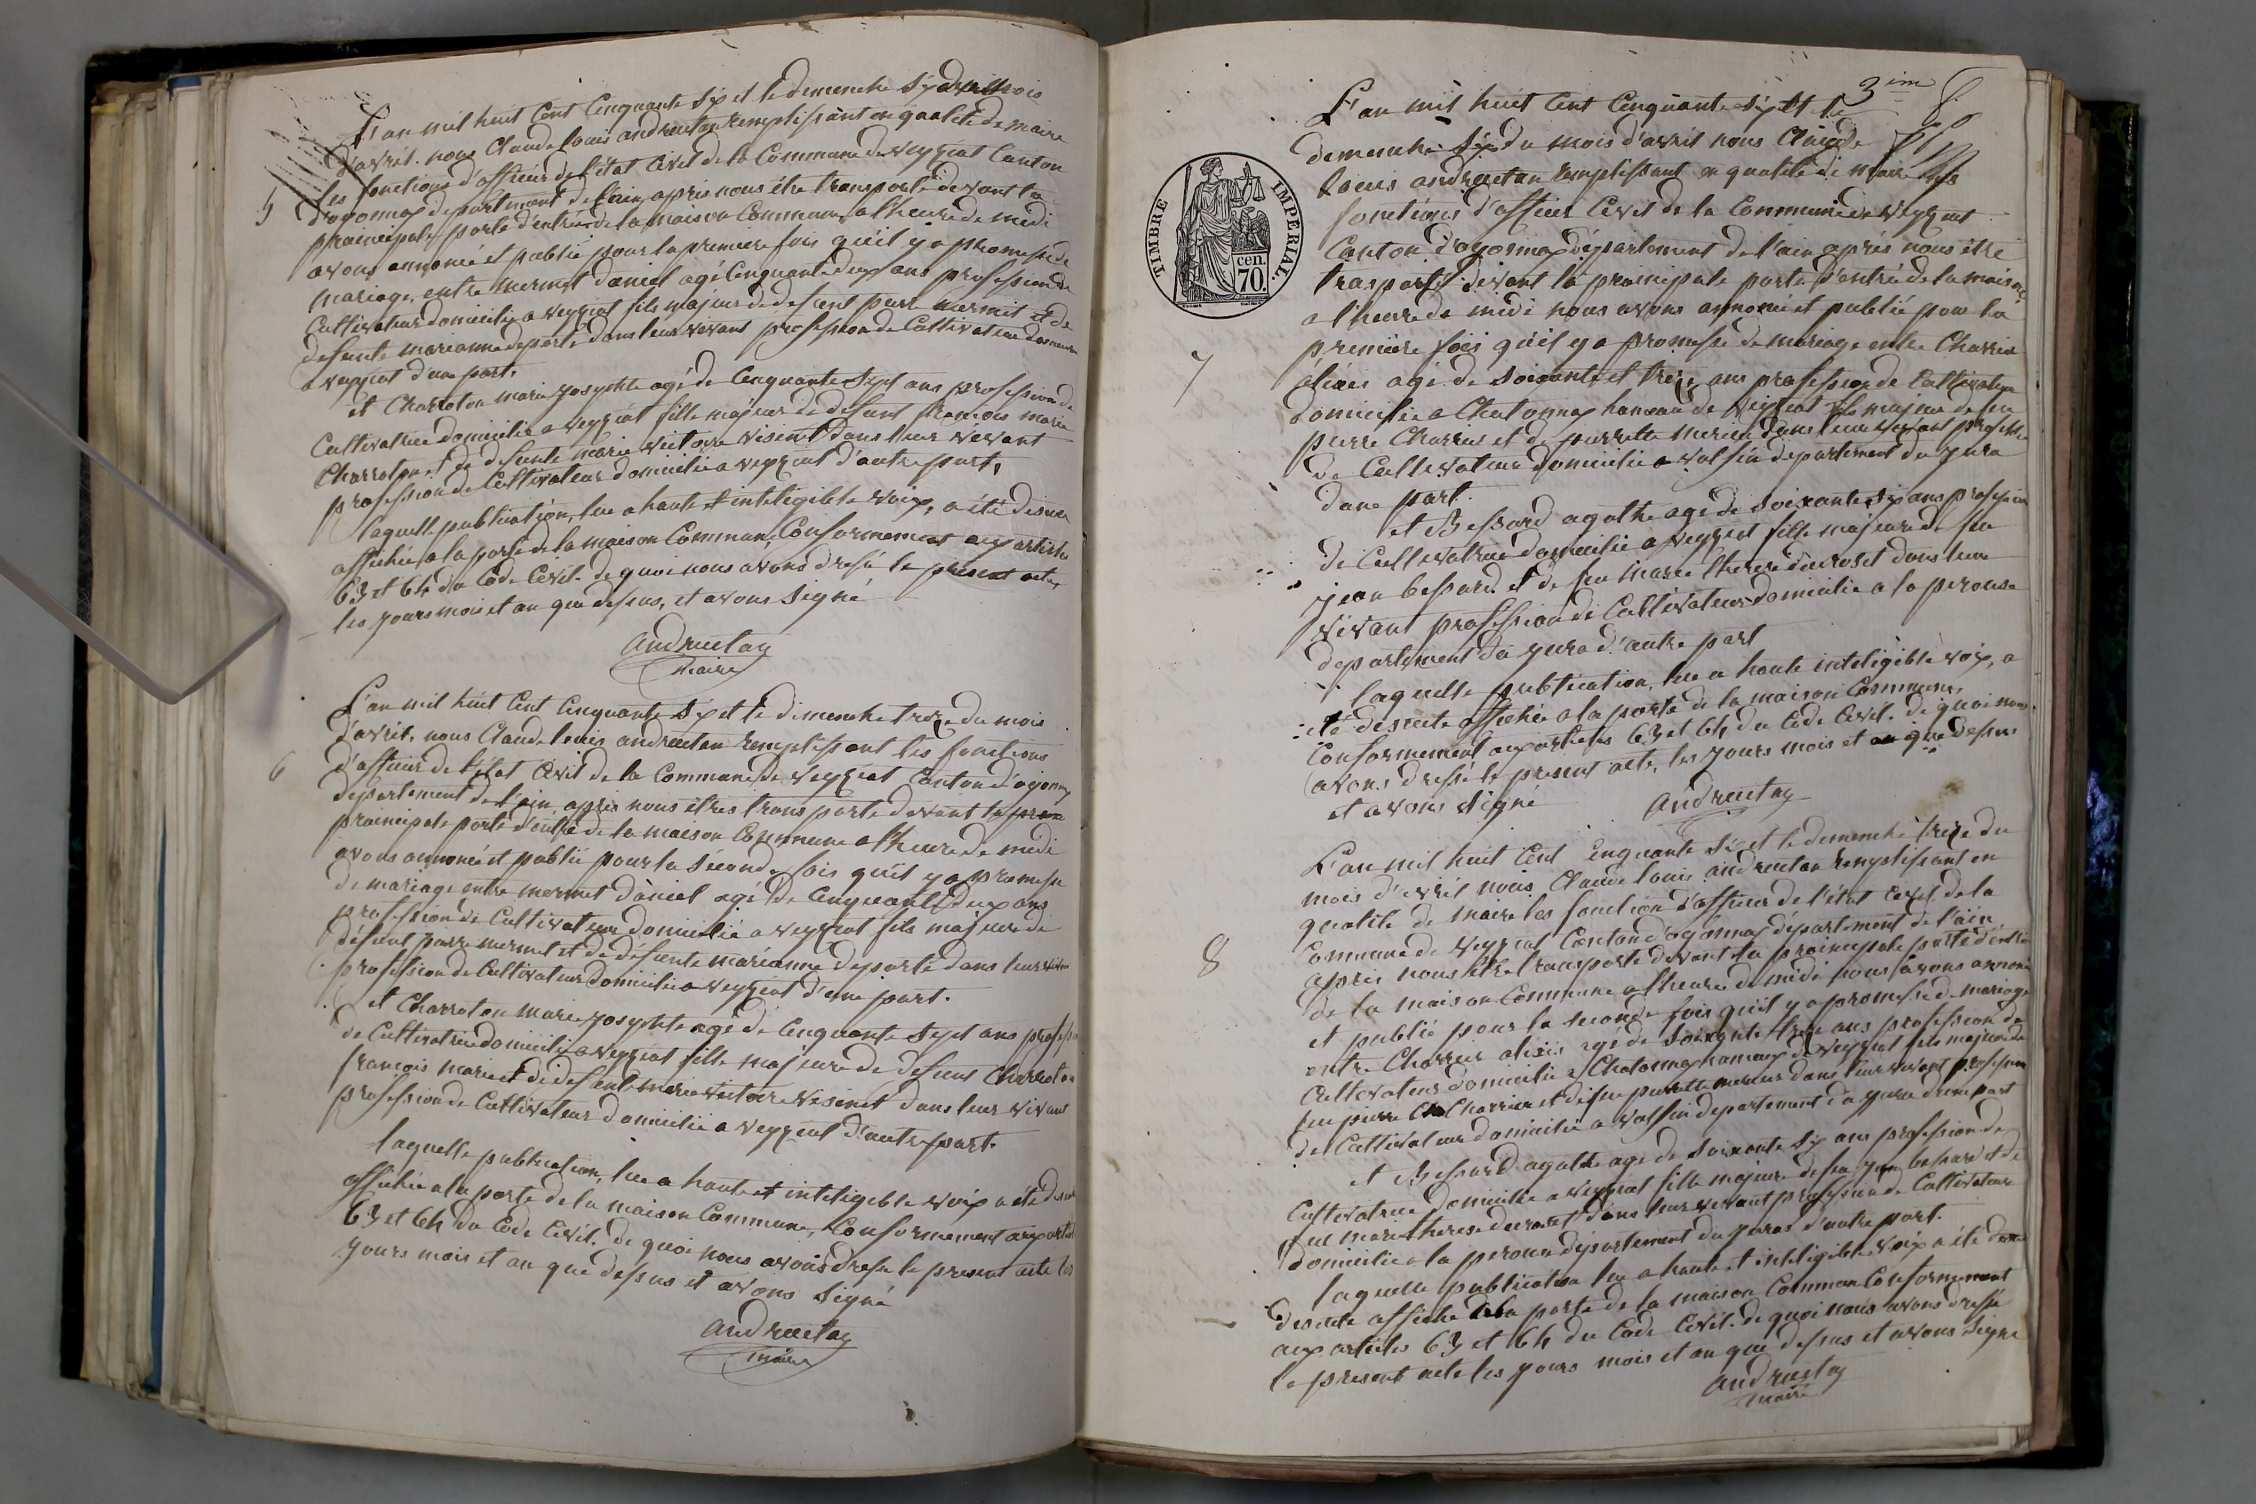 5
L'an mil huit Cent Cenquante Six et le demenche Six du mois
d'avril. nous Claude louis andruetan remplissant en qualité de maire
les fonctions d'officier de l'état Civil de la Commune de veyziat Canton
d'oyonnax departement de l'ain, apris nous être transporté devant la
prainicipale porte d'entrée de la maison Commune a lheure de midi
avons annoncé et publié pour la premiere fois qu'il y a promesse de
mariage, entre mermet daniel agé Cenquante deux ans profession de
Cultivateur domicilié a veyziat fils majeur de defunt pierre mermet et de
defunte marianne deporte dans leur vivant profession de Cultivateur
a veyziat d'une part.
et Charroton marie yosephte agé de Cenquante Sept ans profession de
Cultivatrice domicilié a veyziat fille majeur de defunt francois marie
Charroton et de defunte marie victoire visenet dans leur vivant
profession de Cultivateur domicilié a veyziat d'autre part,
laquelle publication, lue a haute et inteligible voix, a été
affichée a la porte de la maison Commune, Conformement aux articles
63 et 64 du Code Civil. de quoi nous avons dressé le present acte,
les yours mois et an que dessus, et avons Signé
andruetan
maire
6
L'an mil huit Cent Cenquante Six et le dimenche treize du mois
d'avril. nous Claude louis andruetan remplissant les fonctions
d'officier de l'état Civil de la Commune de veyziat Canton d'oyonnax
departement de l'ain, apris nous êtres transporté devant la
prainicipale porte d'entrée de la maison Commune a lheure de midi
avons annoncé et publié pour la Seconde fois qu'il y a promesse
de mariage, entre mermet daniel agé de Cenquante deux ans
profession de Cultivateur domicilié a veyziat fils majeur de
défunt pierre mermet et de défunte marianne deporte dans leur vivan
profession de Cultivateur domicilié a veyziat d'une part.
et Charroton marie yosephte agé de Cenquante Sept ans profession
de Cultivatrice domicilié a veyziat fille majeure de defunt Charroton
francois marie et de defunte marie victoire visenet dans leur vivant
profession de Cultivateur domicilié a veyziat d'autre part.
laquelle publication, lue a haute et inteligible voix a été
affichée a la porte de la maison Commune, Conformement aux articles
63 et 64 du Code Civil. de quoi nous avons dressé le present acte les
yours mois et an que dessus et avons Signé
andruetan
maire
3im
TIMBRE IMPERIAL.
70. cen.
7
L'an mil huit Cent Cenquante Six et le
demenche Six du mois d'avril nous Claude
louis andruetan remplissant en qualité de maire les
fonctions d'officier Civil de la Commune de veyziat
Canton d'oyonnax département de l'ain après nous être
trasporté devant la prainicipale porte d'entrée de la maison
a l'heure de midi nous avons annoncé et publié pour la
première fois qu'il y a promesse de mariage entre Charrier
alixis agé de Soixante et treize ans profession de Cultivateur
domicilié a Chatonnax hameau de veyziat fils majeur de feu
pierre Charrier et de pierrette mercier dans leur vivant profession
de Cultivateur domicilié a valfin departement du yura
dune part
et Bessard agathe agé de Soixante six ans profession
de Cultivatrice domicilié a veyziat fille majeure de feu
jean bessard et de feu marie therese ducroset dans leur
vivant profession de Cultivateur domicilié a la perouse
departement du yura d'autre part
laquelle publication, lue a haute inteligible voix, a
été desuite affichée a la porte de la maison Commune,
Conformement aux articles 63 et 64 du Code Civil. de quoi nous
avons dressé le present acte, les yours mois et an que dessus
et avons Signé
andruetan
8
L'an mil huit Cent Cenquante Six et le demenche treize du
mois d'avril nous Claude louis andruetan remplissant en
qualité de maire les fonction d'officier de l'état Civil de la
Commune de veyziat Canton d'oyonnax département de l'ain
apris nous être transporté devant la prainicipale porte d'entrée
de la maison Commune a lheure de midi nous avons annoncé
et publié pour la Seconde fois qu'il y a promesse de mariage
entre Charrier alixis agé de Soixante treize ans profession de
Cultivateur domicilié a Chatonnax hameau de veyziat fils majeur de
feu pierre Charrier et de feu pierrette mercier dans leur vivant profession
de Cultivateur domicilié a valfin departement du yura d'une part
et Bessard agathe agé de Soixante Six ans profession de
Cultivatrice domicilié a veyziat fille majeure de feu yean bessard et de
feue marie therese ducroset dans leur vivant profession de Cultivateur
domicilié a la perouse département du yura d'autre part.
laquelle publication lue a haute et inteligible voix a été
desuite affiché a la porte de la maison Commune Conformement
aux articles 63 et 64 du Code Civil. de quoi nous avons dressé
le present acte les yours mois et an que dessus et avons Signé
andruetan
maire